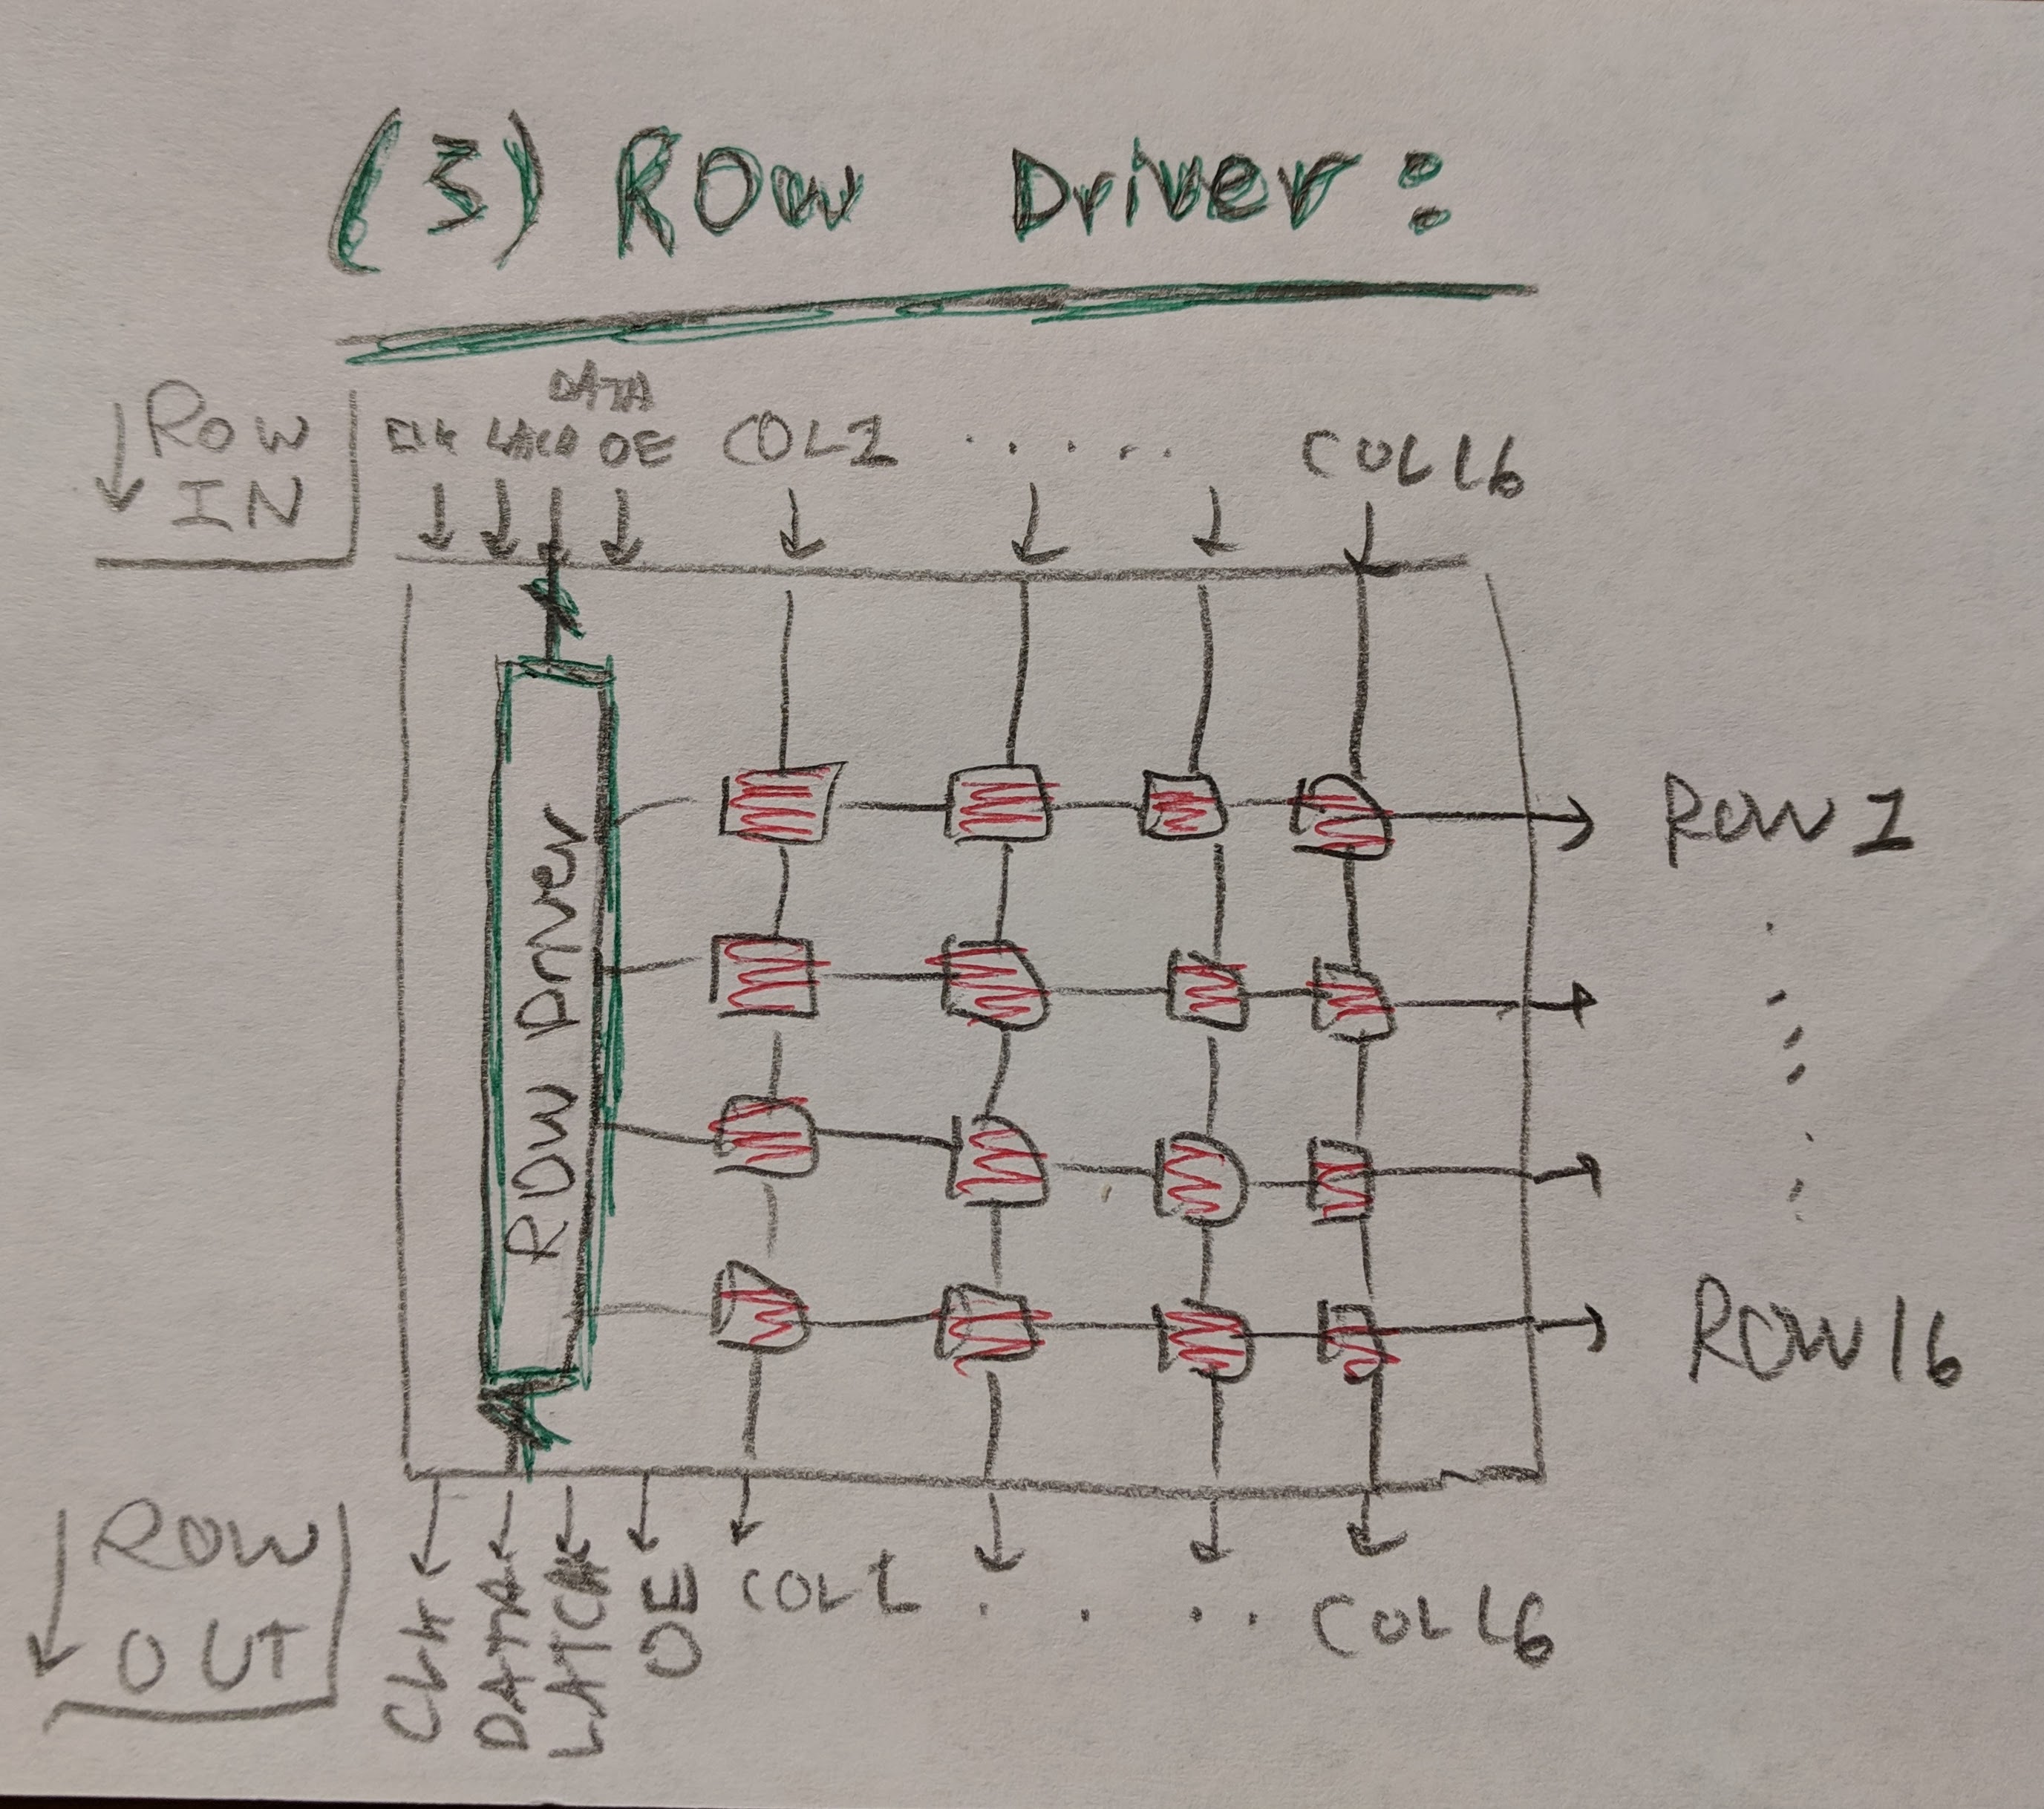 (3) ROW Driver:
DATA
ROW IN
CLK LATCH OE COL1 ..... COL16
Row Driver
ROW 1
ROW 16
ROW OUT
CLK DATA LATCH OE COL1 .... COL16